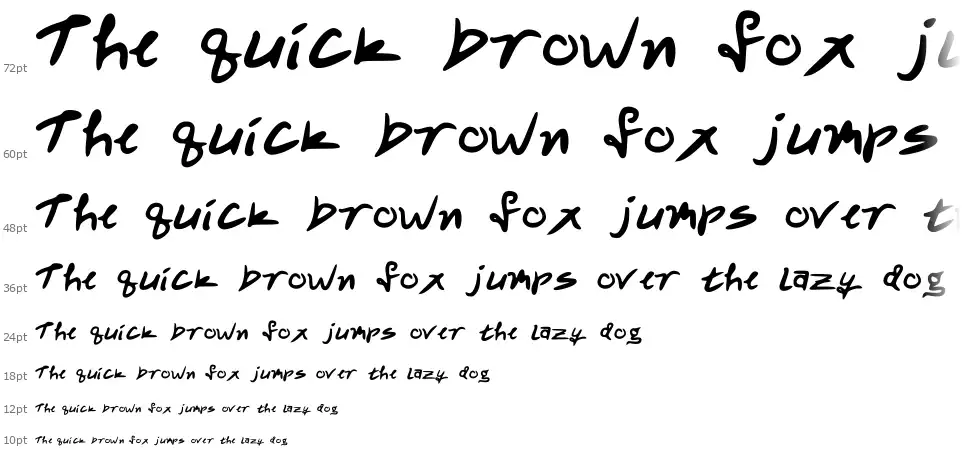 72pt The quick brown fox ju
60pt The quick brown fox jumps
48pt The quick brown fox jumps over t
36pt The quick brown fox jumps over the lazy dog
24pt The quick brown fox jumps over the lazy dog
18pt The quick brown fox jumps over the lazy dog
12pt The quick brown fox jumps over the lazy dog
10pt The quick brown fox jumps over the lazy dog